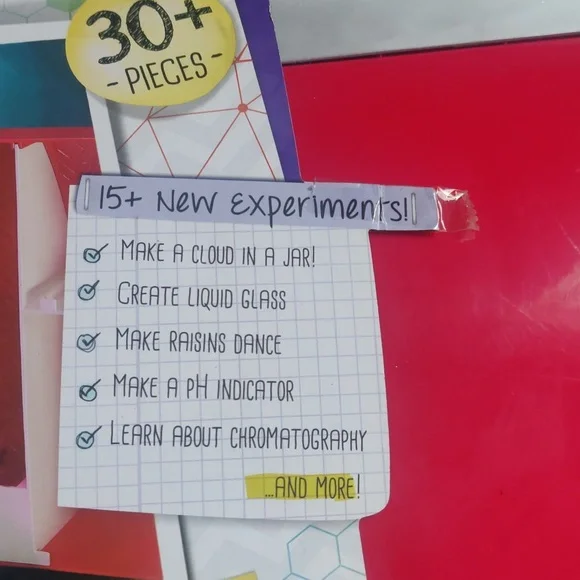 30+
- PIECES -
15+ New Experiments!
MAKE A CLOUD IN A JAR!
CREATE LIQUID GLASS
MAKE RAISINS DANCE
MAKE A pH INDICATOR
LEARN ABOUT CHROMATOGRAPHY
...AND MORE!